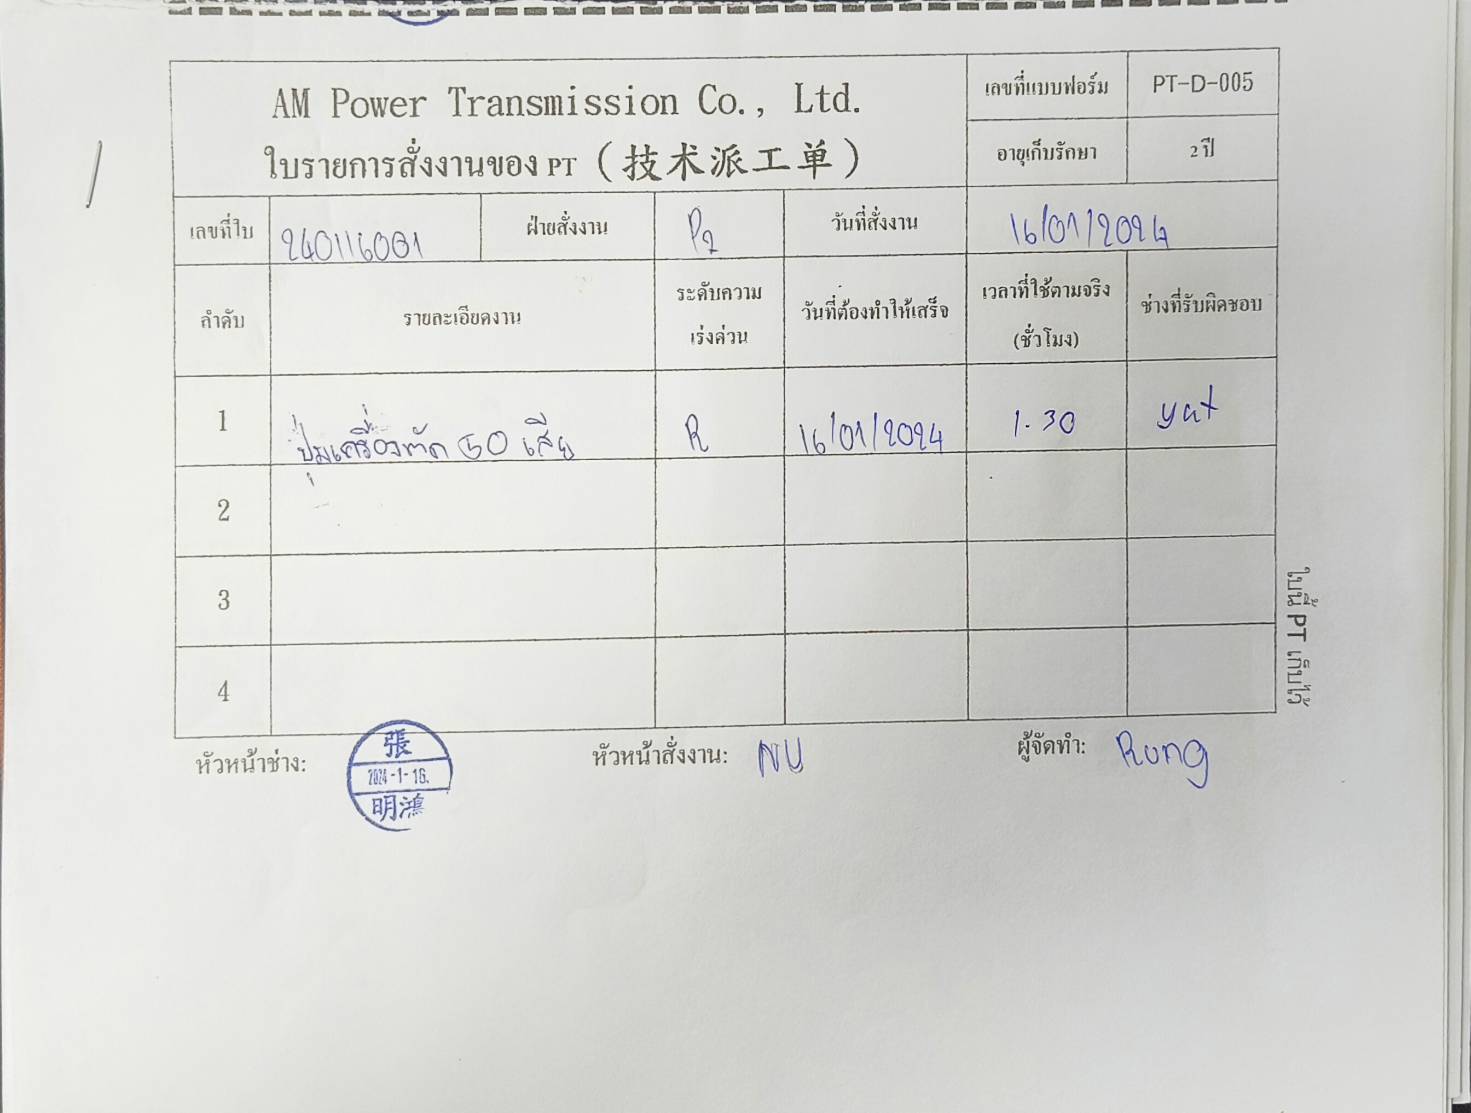 AM Power Transmission Co., Ltd.
ใบรายการสั่งงานของ PT (技术派工单)
เลขที่แบบฟอร์ม PT-D-005
อายุเก็บรักษา 2 ปี
เลขที่ใบ 240116001 ฝ่ายสั่งงาน P2 วันที่สั่งงาน 16/01/2024
ลำดับ รายละเอียดงาน ระดับความเร่งด่วน วันที่ต้องทำให้เสร็จ เวลาที่ใช้ตามจริง (ชั่วโมง) ช่างที่รับผิดชอบ
1 ปุ่มเครื่องตัด 50 เสีย R 16/01/2024 1.30 yat
2
3
4
ใบนี้ PT เก็บไว้
หัวหน้าช่าง: 張 2024-1-16. 明鴻 หัวหน้าสั่งงาน: NU ผู้จัดทำ: Rung